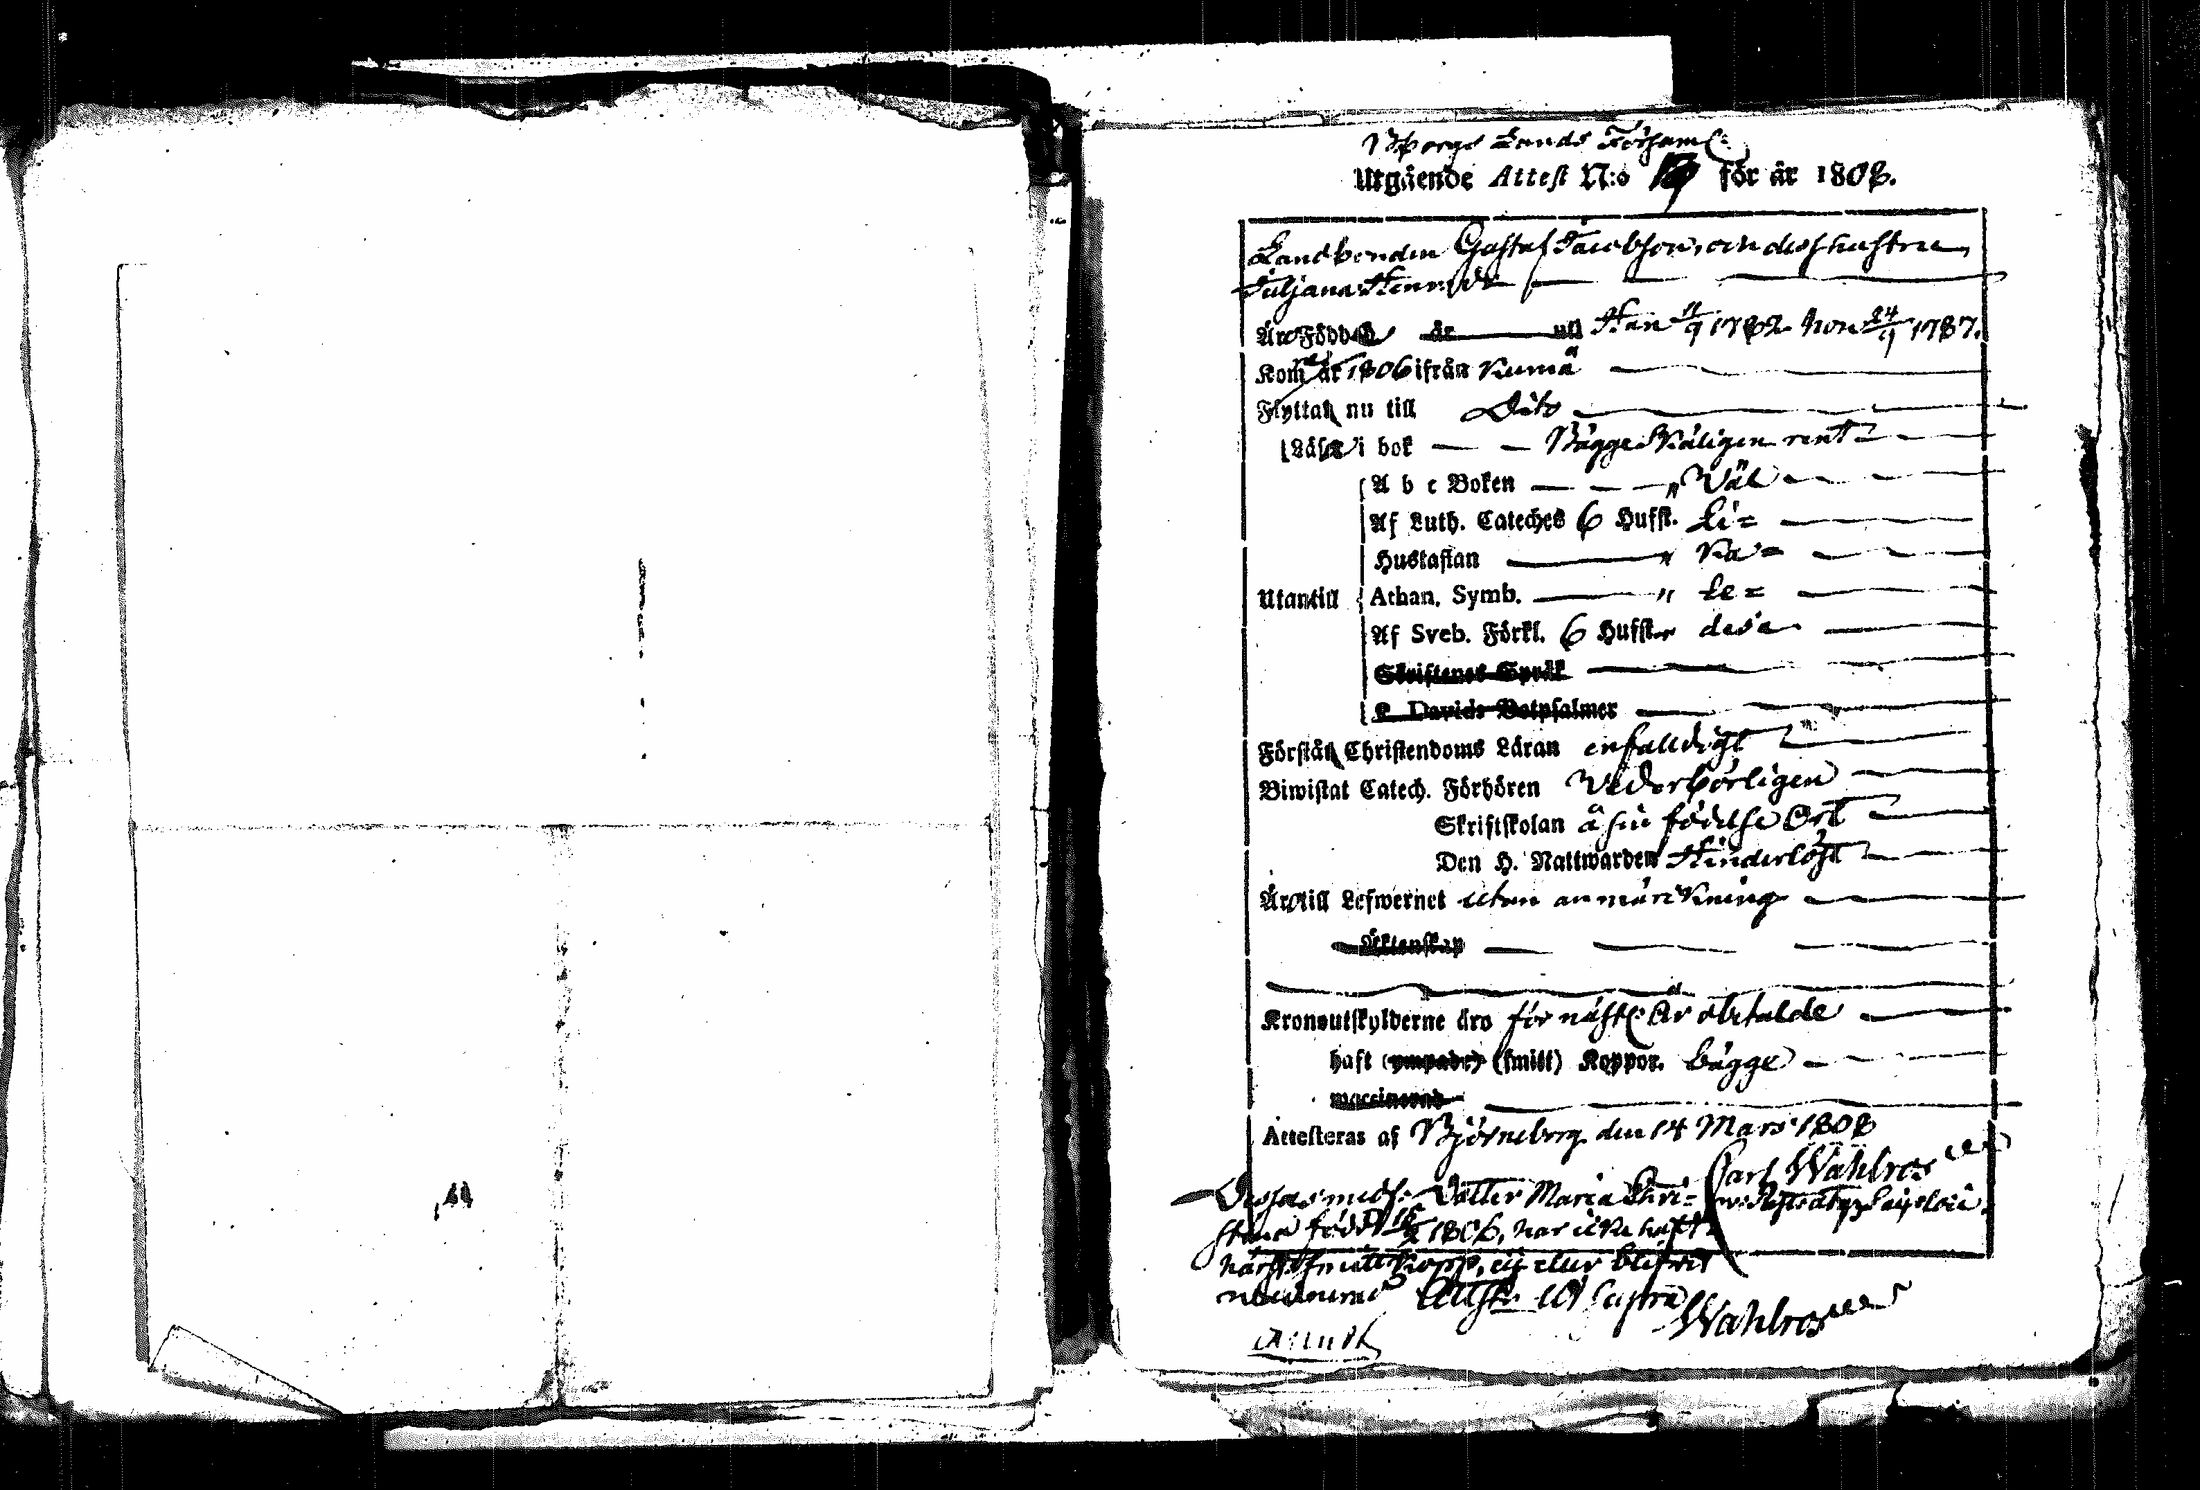 Bborgs Lands Församl:
Utgående Attest N:o 19 för år 1808.
Landbonden Gustaf Jacobson, och dess hustru
Juljana Henricsdr
Äro Födde år uti Han 11/9 1782 hon 24/9 1787.
Kommo år 1806 ifrån Kumå
Flytta nu till Dito
Läsa i bok Bägge Skäligen rent
A b c Boken „ Väl
Af Luth. Cateches 6 Hufst. Li=
Hustaflan „ Ka=
Utantill Athan. Symb. „ Le=
Af Sveb. Förkl. 6 Hufst. desa
Skriftenes Språk
K. Davids Botpsalmer
Förstå Christendoms Läran enfaldigt
Biwistat Catech. Förhören Vederbörligen
Skriftskolan å sin födelse Ort
Den H. Nattwarden Hinderlöst
Äro till Lefwernet utan anmärckning
Äktenskap
Kronoutskylderne äro för näst: År obetalde
haft (ympade) (smitt) Koppor. bägge
waccinerad
Attesteras af Björneborg den 14 Mars 1808
Carl Wahlroos
Dessas medf: Dotter Maria Chri=
stina född 1806, har icke haft
hwarken smitt Kopp, ej eller blifwit
vaccinerad Attest. Ut Supra
Wahlroos